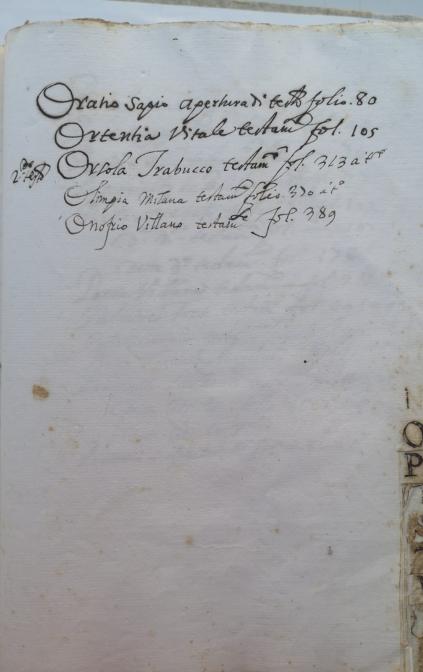 Oratio Sapio apertura di testo folio. 80
Ortentia Vitale testamto fol. 105
Orsola Trabucco testamto fol. 313 a to
Olimpia Milana testamto folio. 370 a to
Onofrio Villano testamto fol. 389
O
P